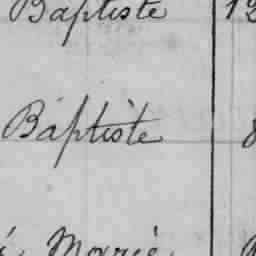 Baptiste 12
Baptiste 8
Marie